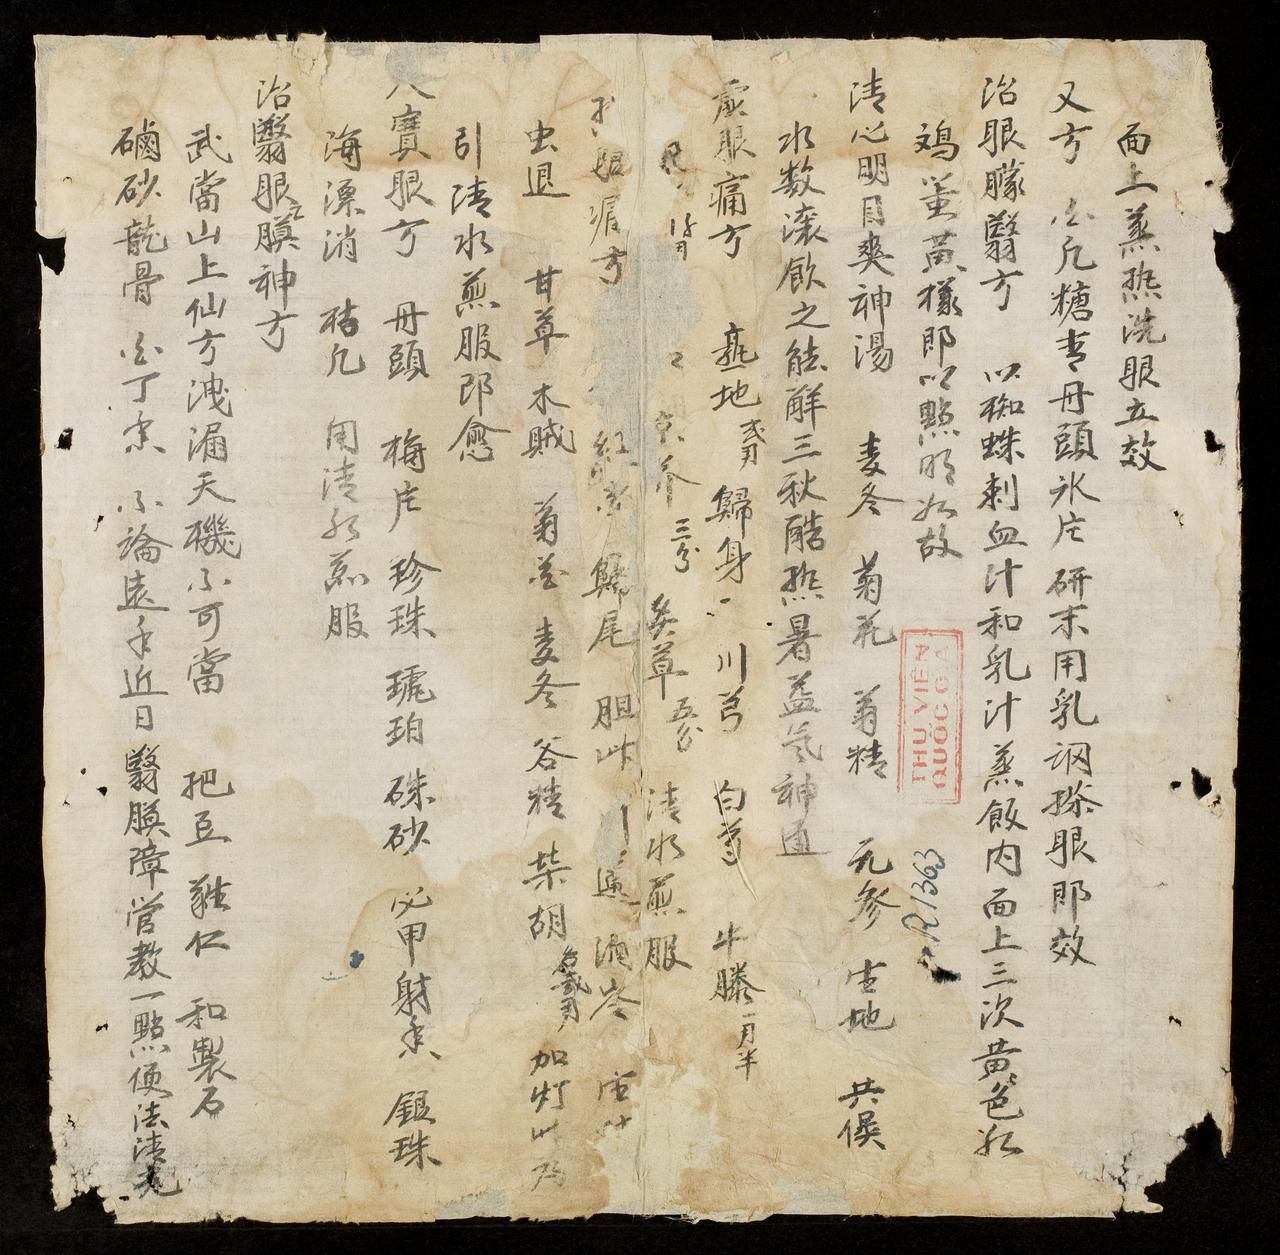 面上蒸热洗眼立效
又方 白凡糖青丹頭氷片研末用乳調搽眼即效
治眼矇翳方 以蜘蛛刺血汁和乳汁蒸飯内面上三次黄色如
鳮蛋黄樣即以點明如故
清心明目爽神湯 麦冬 菊花 蒭精 元參 生地 共侯
水数滚飲之能解三秋酷热暑益氣神通
虚眼痛方 熟地 歸身 川芎 白芍 牛膝 一月半
三分 炙草 五分 清水煎服
眼 方 紅 歸尾 胆 通 酒芩
虫退 甘草 木賊 菊花 麦冬 谷精 柴胡 加灯
引清水煎服即愈
八寶眼方 丹頭 梅片 珍珠 琥珀 硃砂 必甲 射香 銀珠
海漂消 枯凡 用清水煎服
治翳眼膜神方
武當山上仙方洩漏天機不可當 把豆 雞仁 和製石
磠砂 龍骨 白丁香 不論遠年近日翳膜障管教一點便法清光
THƯ VIỆN
QUỐC GIA
R1363